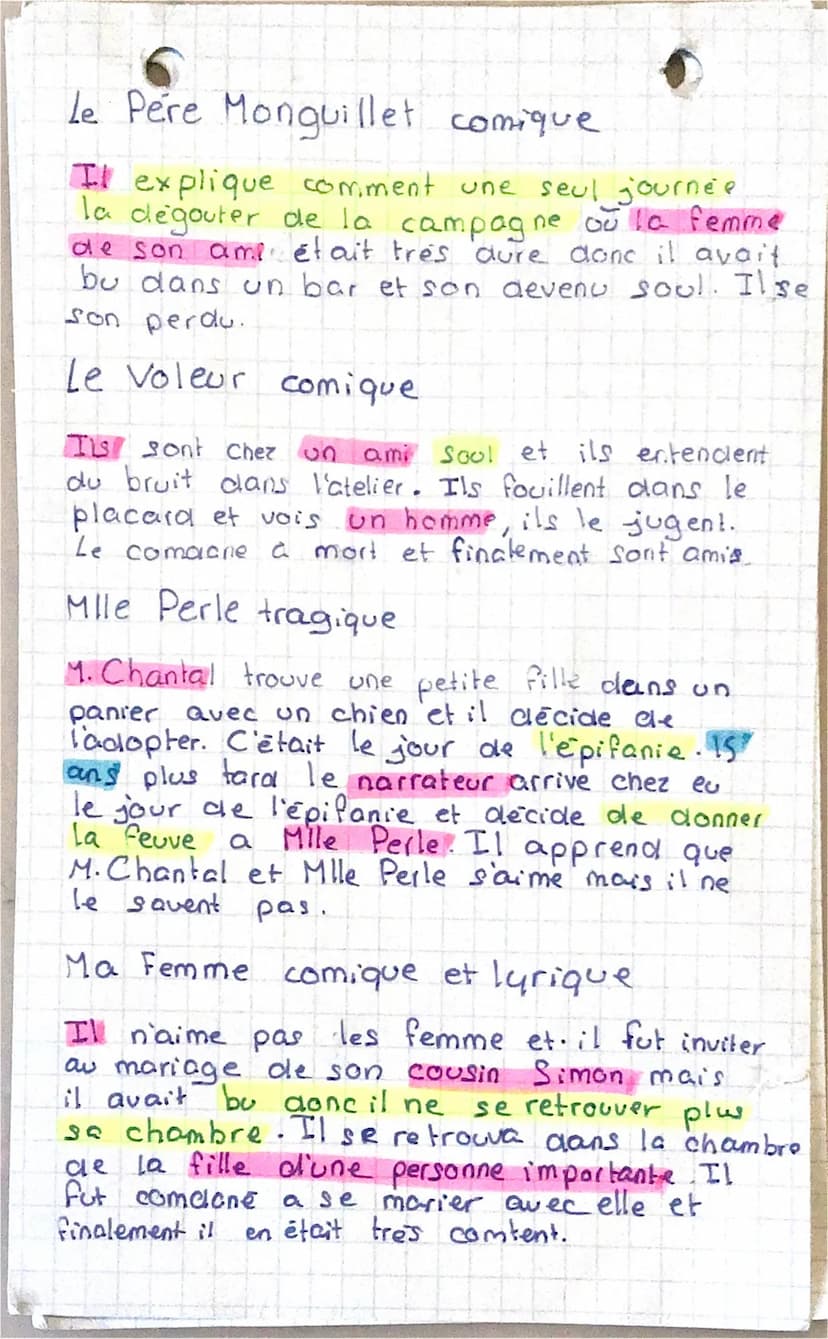 Le Père Monguillet comique
Il explique comment une seul journée
la dégouter de la campagne où la femme
de son ami était très dure donc il avait
bu dans un bar et son devenu soul. Il se
son perdu.
Le Voleur comique
Ils sont chez un ami soul et ils entendent
du bruit dans l'atelier. Ils fouillent dans le
placard et vois un homme, ils le jugent.
Le comdcne à mort et finalement sont amis
Mlle Perle tragique
M. Chantal trouve une petite fille dans un
panier avec un chien et il décide de
l'adopter. C'était le jour de l'épifanie. 15
ans plus tard le narrateur arrive chez eu
le jour de l'épifanie et décide de donner
la feuve a Mlle Perle. Il apprend que
M. Chantal et Mlle Perle s'aime mais il ne
le savent pas.
Ma Femme comique et lyrique
Il n'aime pas les femme et il fut inviter
au mariage de son cousin Simon mais
il avait bu donc il ne se retrouver plus
sa chambre. Il se retrouva dans la chambre
de la fille d'une personne importante. Il
fut comdcné a se marier avec elle et
finalement il en était très comtent.